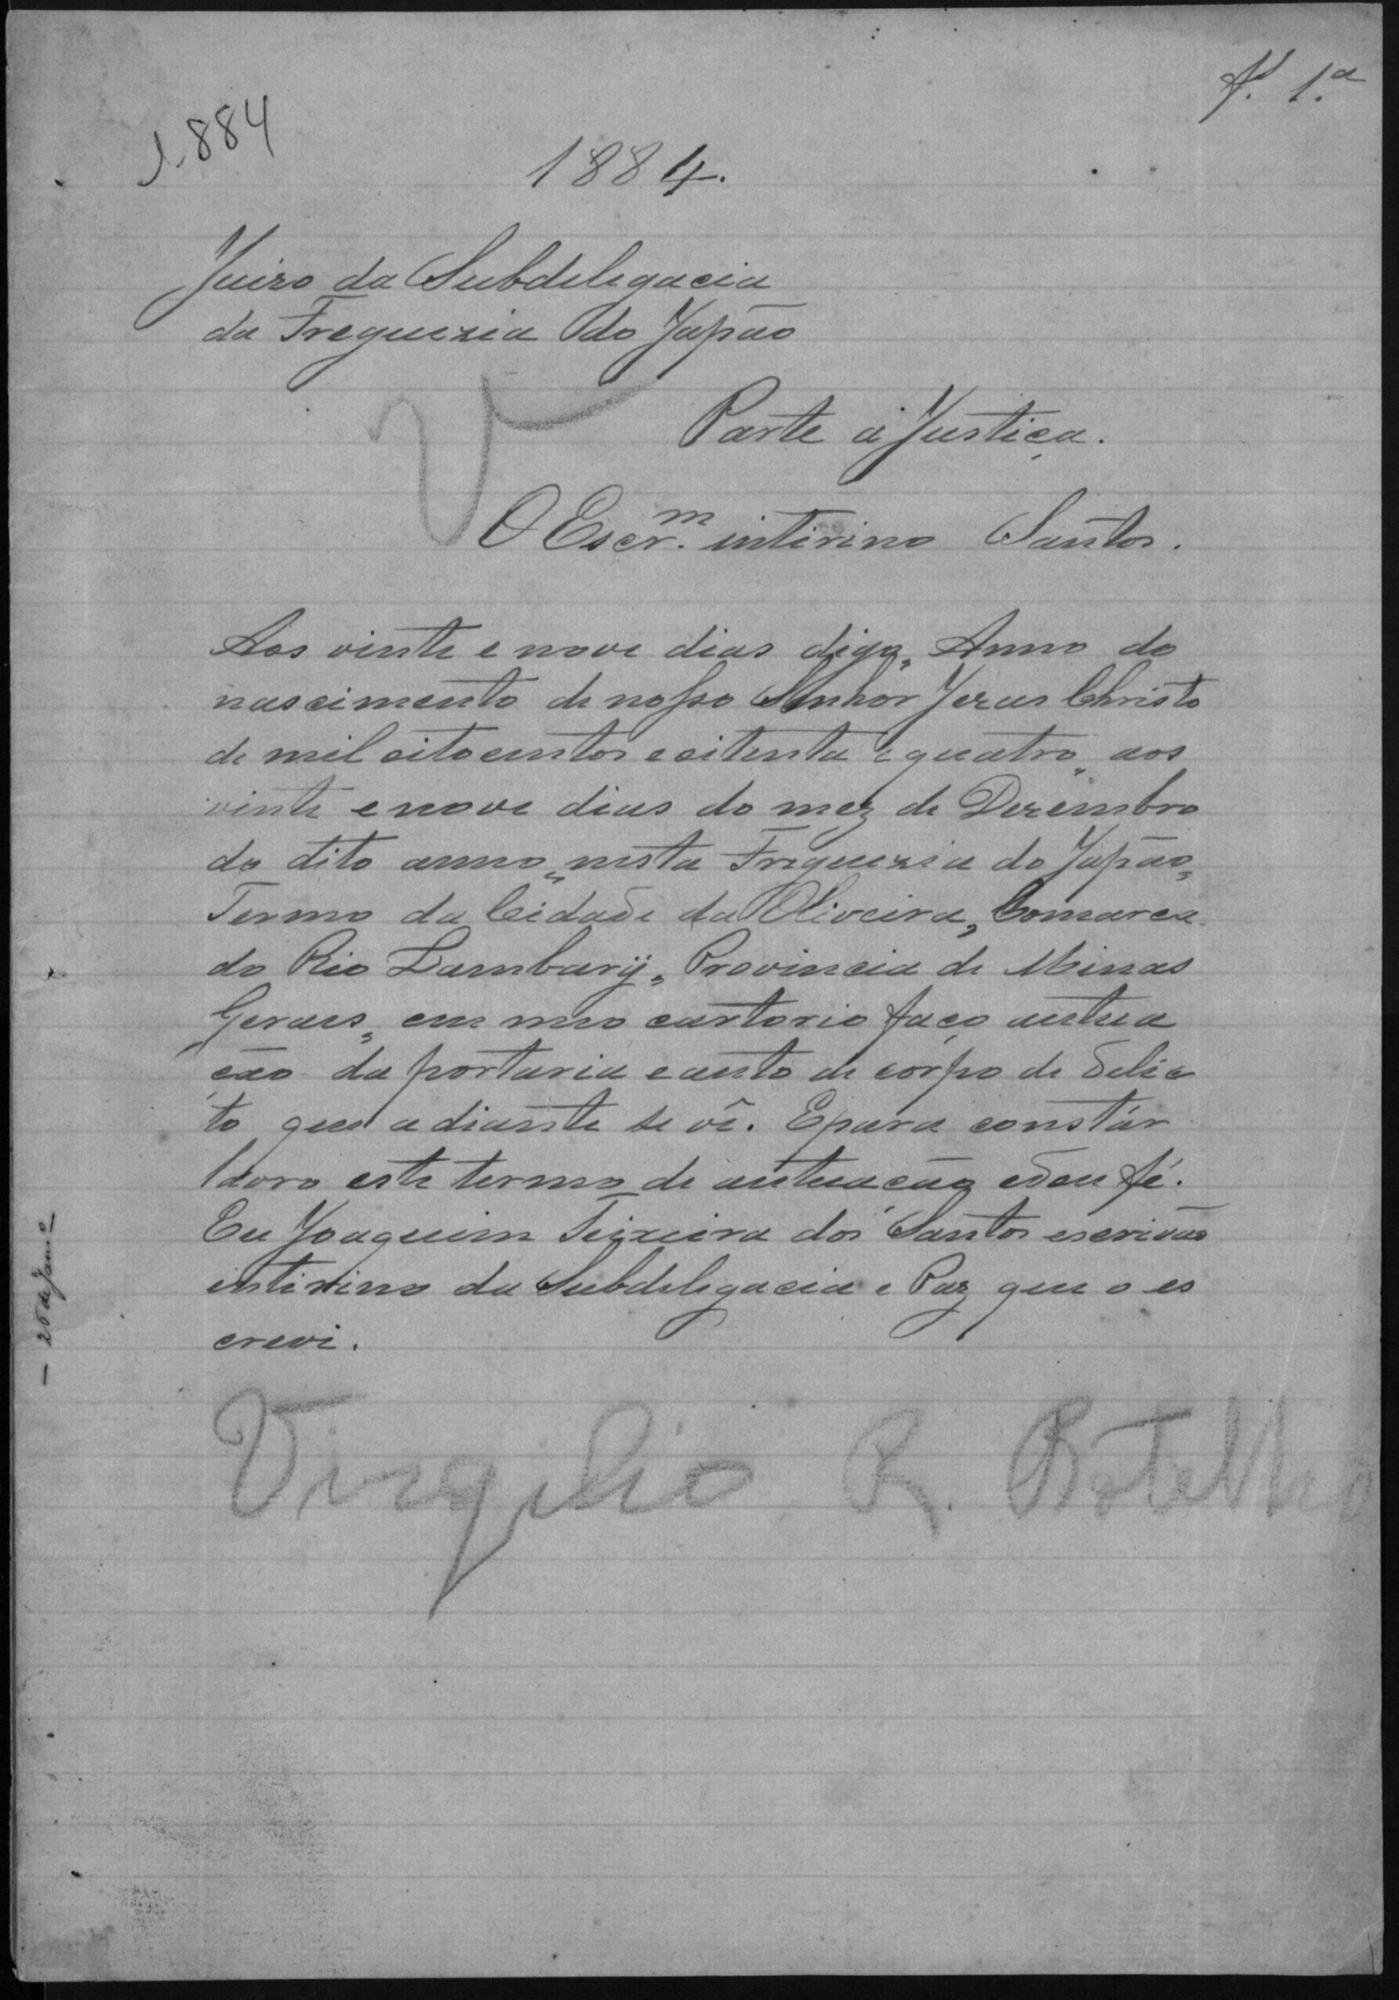 f. 1.ª
1.884
1884.
Juizo da Subdelegacia
da Freguezia do Japão
Parte a Justiça.
O Escr.m intirino Santos.
Aos vinte e nove dias digo, Anno do
nascimento de nosso Senhor Jezus Christo
de mil oitocentos e oitenta e quatro, aos
vinte e nove dias do mez de Dezembro
do dito anno, nesta Freguezia do Japão,
Termo da Cidade da Oliveira, Comarca
do Rio Lambarÿ, Provincia de Minas
Geraes, em meo cartorio faço autua
ção da portaria e auto de corpo de delic
to que adiante se vê. E para constár
lavro este termo de autuação e dou fé.
Eu Joaquim Teixeira dos Santos escrivão
intirino da Subdelegacia e Paz que o es
crevi.
Virgilio R. Botelho